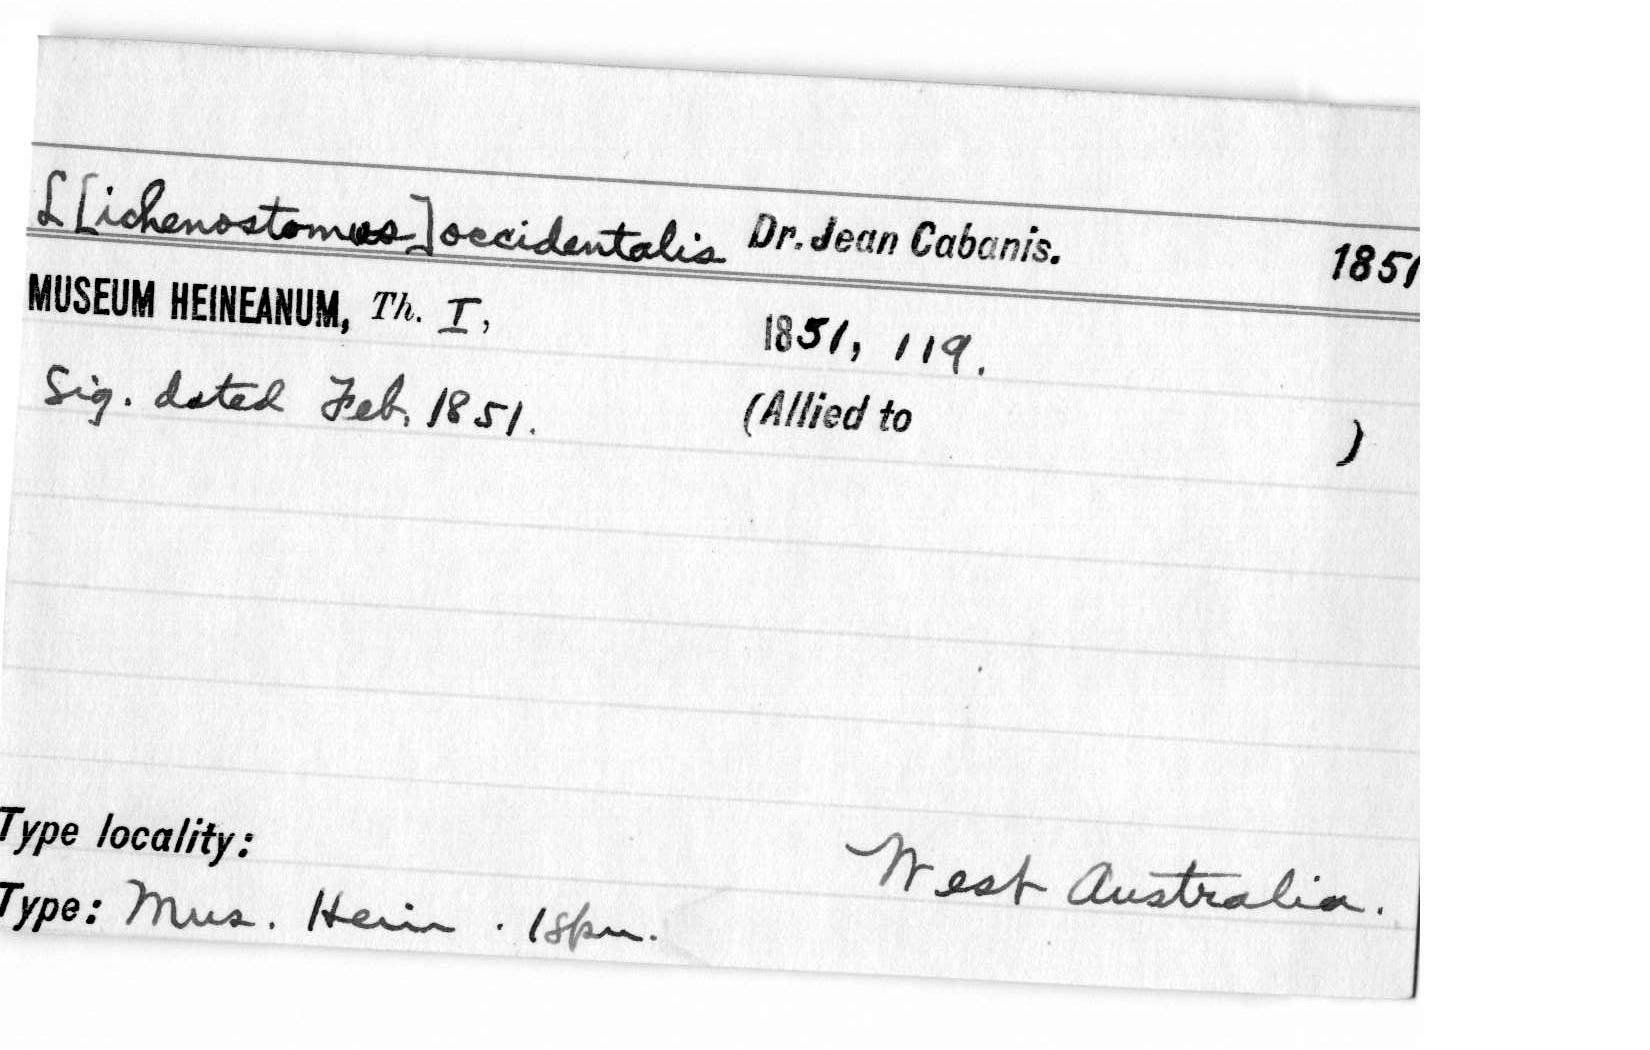 L[ichenostomus] occidentalis Dr. Jean Cabanis. 1851
MUSEUM HEINEANUM, Th. I, 1851, 119.
Sig. dated Feb, 1851. (Allied to )
Type locality: West Australia.
Type: Mus. Hein. 1 spn.